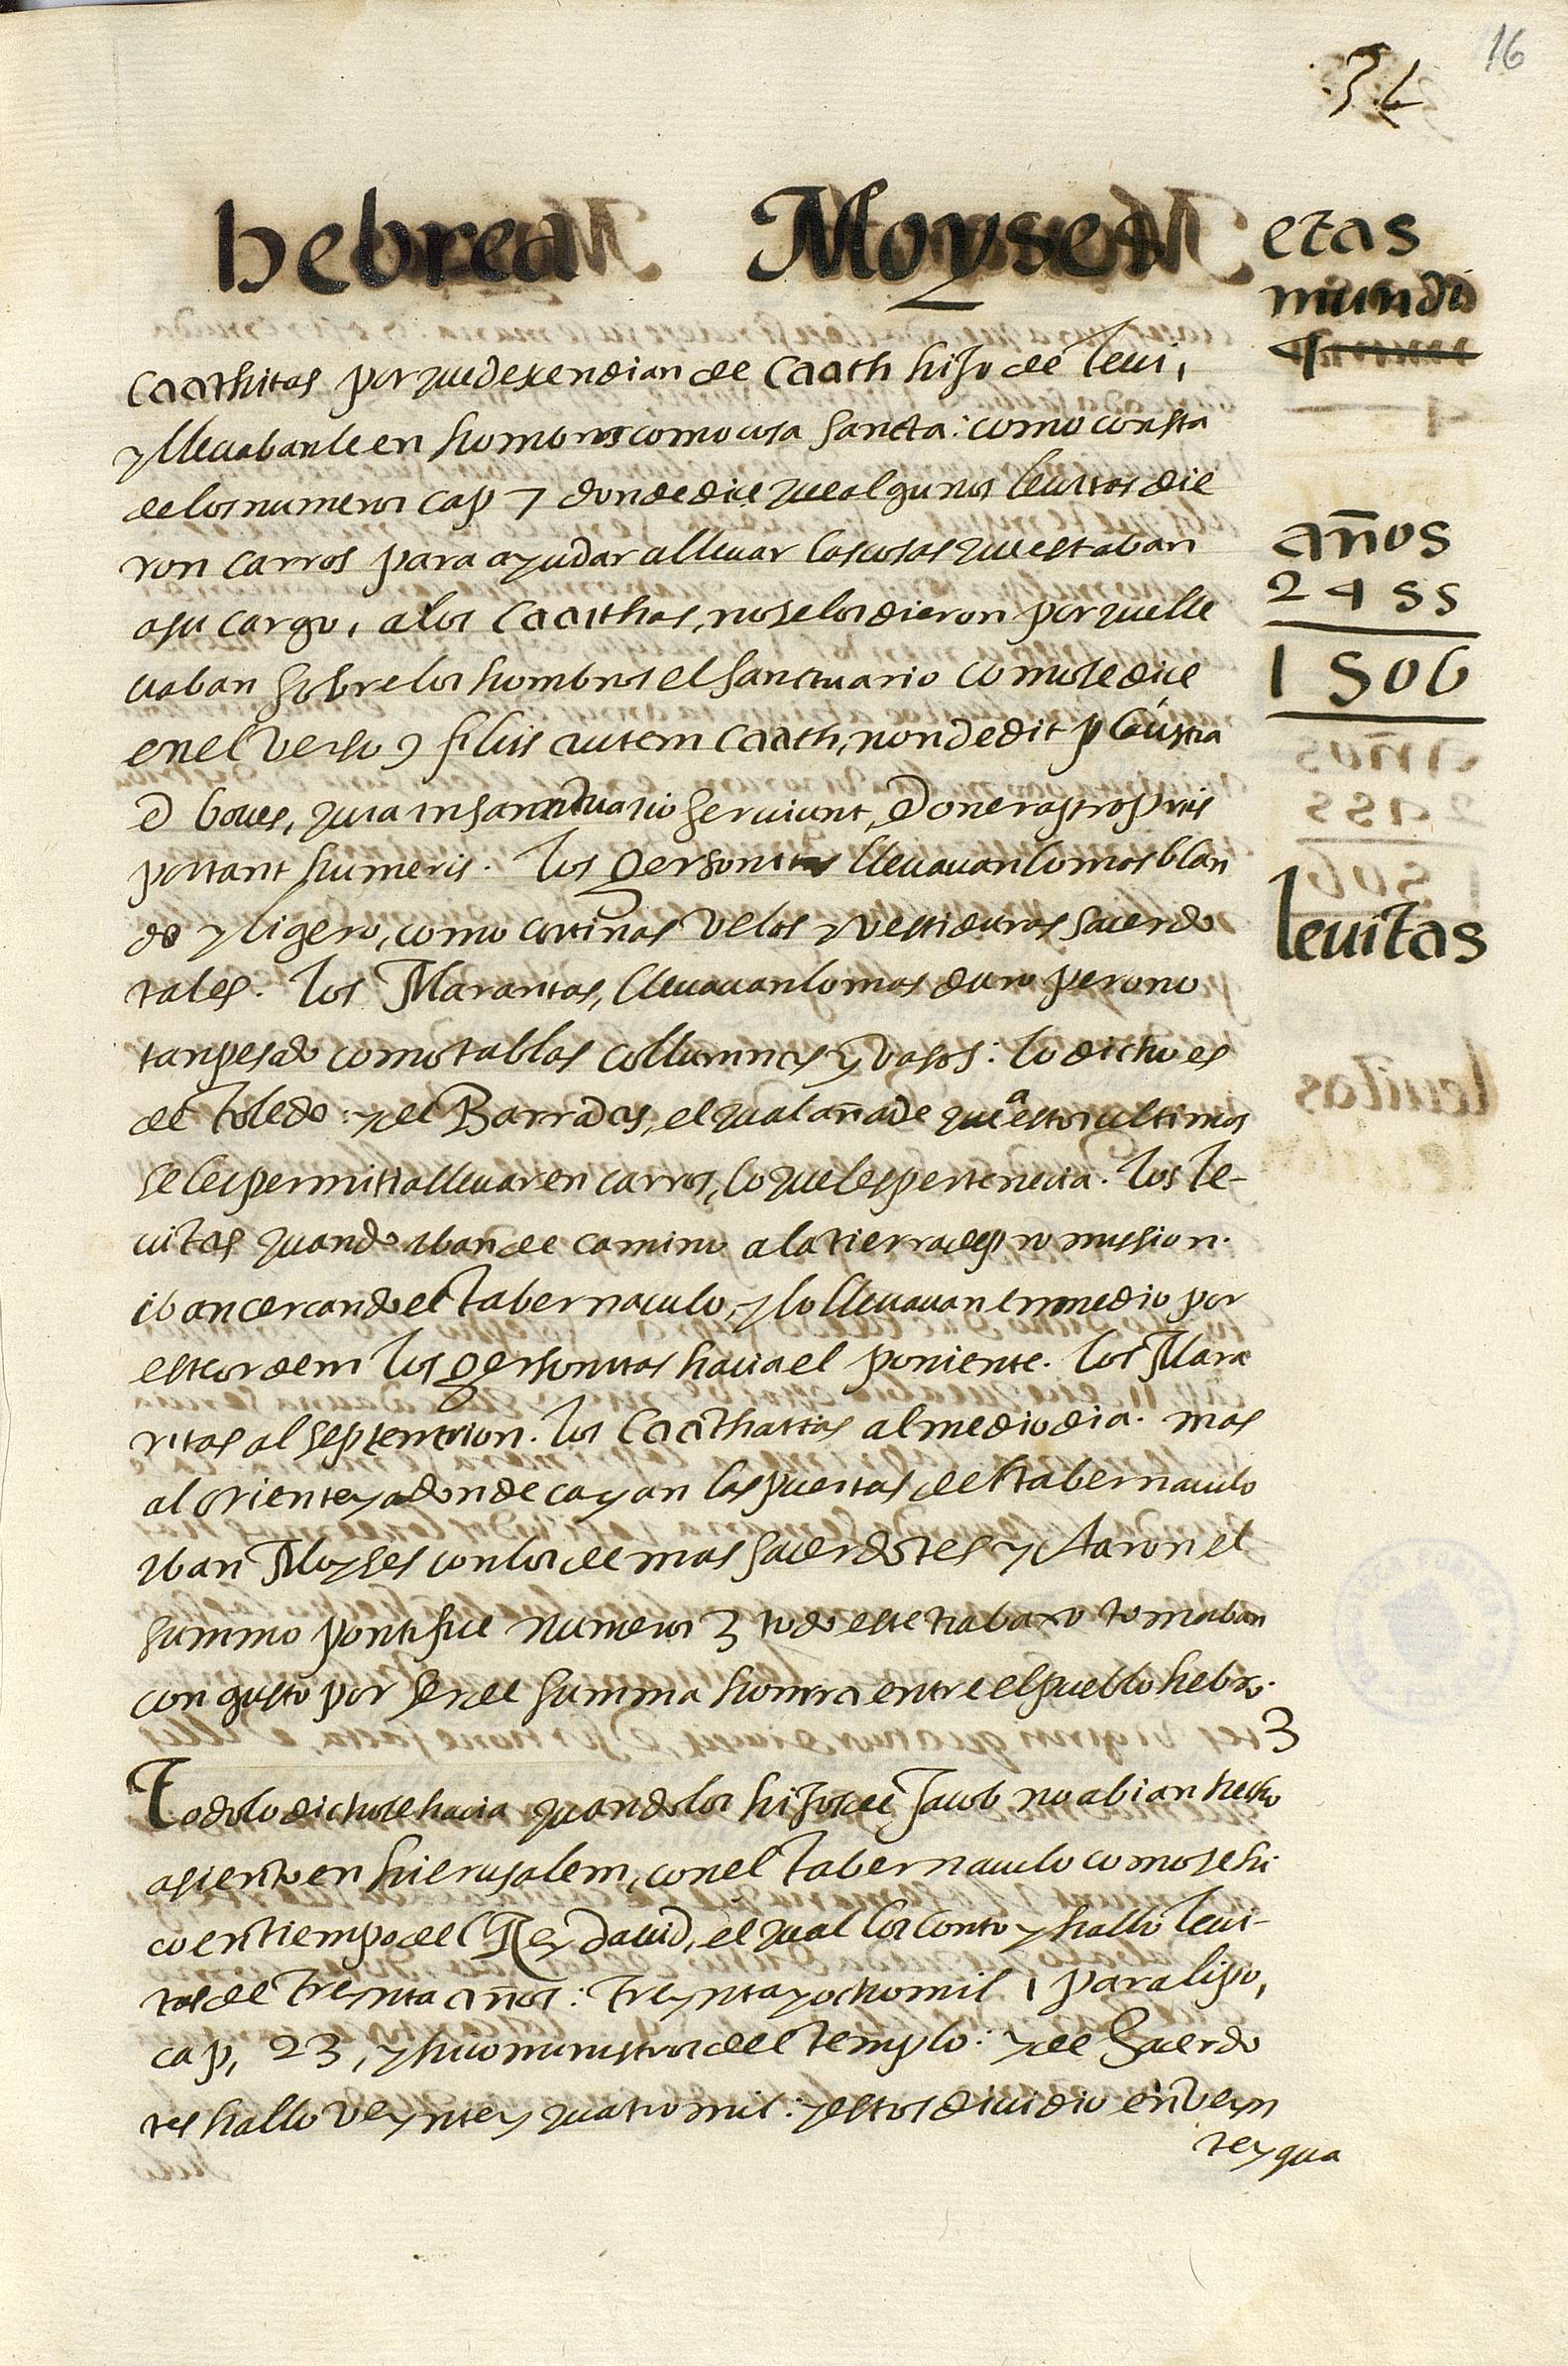 16
34
hebrea Moyses
etas
mundi
4
Caathitas porque decendian de Caath hijo de Leui,
y lleuabanle en hombros como cosa sancta: como consta
de los numeros cap 7 donde dice que algunos leuitas die
ron carros para ayudar a lleuar las cosas que estaban
a su cargo, a los Caathas, no se los dieron porque lle
uaban sobre los hombros el sanctuario como se dice
en el verso 9 filiis autem Caath, non dedit plaustra
& boues, quia in sanctuario seruiunt, & onera propriis
portant humeris. los gersonitas lleuauan lo mas blan
do y ligero, como cortinas velos y vestiduras sacerdo
tales. los Meraritas, lleuauan lo mas duro pero no
tan pesado como tablas collumnas y vasos: lo dicho es
de Toledo: y de Barradas, el qual añade que a estos ultimos
se les permitia lleuar en carros, lo que les pertenecia. los le-
uitas quando iban de camino a la tierra de promission.
iban cercando el tabernaculo, y lo lleuauan en medio por
este ordem los gersonitas hacia el poniente. los Mara
ritas al septentrion. los Caathattas al medio dia. mas
al oriente y a donde cayan las puertas de el tabernaculo
iban Moyses con los de mas sacerdotes y Aaron el
summo pontifice numeros 3 todo este trabaxo tomaban
con gusto por ser de summa homra entre el pueblo hebro.
3
Todo lo dicho se hacia quando los hijos de Jacob no abian hecho
asiento en hierusalem, con el tabernaculo como se hi
co en tiempo de el Rey dauid, el qual los conto y hallo leui-
tas de treynta años: treynta y ocho mil 1 paralipo,
cap, 23, y hico ministros de el templo: y de sacerdo
tes hallo veynte y quatro mil: y estos diuidio en veyn
te y qua
años
2455
1506
leuitas